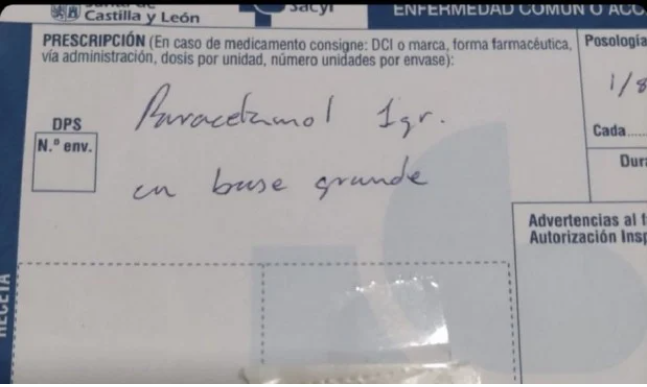 Castilla y León
Sacyl
ENFERMEDAD COMÚN O ACC
PRESCRIPCIÓN (En caso de medicamento consigne: DCI o marca, forma farmacéutica,
vía administración, dosis por unidad, número unidades por envase):
Posología
1/8
DPS
N.º env.
Paracetamol 1gr.
en base grande
Cada.....
Dura
Advertencias al f
Autorización Insp
RECETA